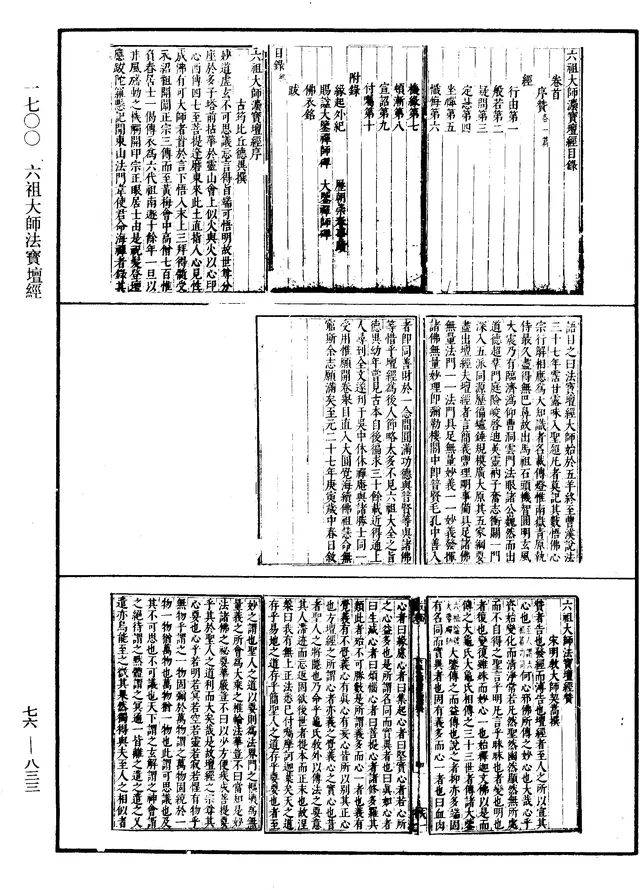 一七〇〇 六祖大師法寶壇經
七六—八三三
六祖大師法寶壇經目錄
卷首
序贊各一篇
經
行由第一
般若第二
疑問第三
定慧第四
坐禪第五
懺悔第六
機緣第七
頓漸第八
宣詔第九
付囑第十
附錄
緣起外紀
歷朝崇奉事蹟
賜諡大鑒禪師碑
大鑒禪師碑
佛衣銘
跋
目錄終
六祖大師法寶壇經序
古筠比丘德異撰
妙道虛玄不可思議忘言得旨端可悟明故世尊分
座於多子塔前拈華於靈山會上似火與火以心印
心西傳四七至菩提達磨東來此土直指人心見性
成佛有可大師者首於言下悟入末上三拜得髓受
衣紹祖開闡正宗三傳而至黃梅會中高僧七百惟
負舂居士一偈傳衣為六代祖南遯十餘年一旦以
非風旛動之機觸開印宗正眼居士由是祝髮登壇
應跋陀羅懸記開東山法門韋使君命海禪者錄其
語目之曰法寶壇經大師始於五羊終至曹溪說法
三十七年霑甘露味入聖超凡者莫記其數悟佛心
宗行解相應為大知識者名載傳燈惟南嶽青原執
侍最久盡得無巴鼻故出馬祖石頭機智圓明玄風
大震乃有臨濟溈仰曹洞雲門法眼諸公巍然而出
道德超羣門庭險峻啓迪英靈衲子奮志衝關一門
深入五派同源歷徧爐錘規模廣大原其五家綱要
盡出壇經夫壇經者言簡義豐理明事備具足諸佛
無量法門一一法門具足無量妙義一一妙義發揮
諸佛無量妙理即彌勒樓閣中即普賢毛孔中善入
者即同善財於一念間圓滿功德與普賢等與諸佛
等惜乎壇經為後人節略太多不見六祖大全之旨
德異幼年嘗見古本自後徧求三十餘載近得通上
人尋到全文遂刊于吳中休休禪庵與諸勝士同一
受用惟願開卷舉目直入大圓覺海續佛祖慧命無
窮斯余志願滿矣至元二十七年庚寅歲中春日敘
六祖大師法寶壇經贊
宋明教大師契嵩撰
贊者告也發經而溥告也壇經者至人之所以宣其
心也何心邪佛所傳之妙心也大哉心乎
資始變化而清淨常若凡然聖然幽然顯然無所處
而不自得之聖言乎明凡言乎昧昧也者變也明也
者復也變復雖殊而妙心一也始釋迦文佛以是而
傳之大龜氏大龜氏相傳之三十三世者傳諸大鑒
大鑒傳之而益傳也說之者抑亦多端固
有名同而實異者也固有義多而心一者也曰血肉
心者曰緣慮心者曰集起心者曰堅實心者若心所
之心益多也是所謂名同而實異者也曰真如心者
曰生滅心者曰煩惱心者曰菩提心者諸修多羅其
類此者殆不可勝數是所謂義多而心一者也義有
覺義有不覺義心有真心有妄心皆所以別其正心
也方壇經之所謂心者亦義之覺義心之實心也昔
者聖人之將隱也乃命乎龜氏教外以傳法之要意
其人滯迹而忘返固欲後世者提本而正末也故涅
槃曰我有無上正法悉已付囑摩訶迦葉矣天之道
存乎易地之道存乎簡聖人之道存乎要要也者至
妙之謂也聖人之道以要則為法界門之樞機為無
量義之所會為大乘之椎輪法華豈不曰當知是妙
法諸佛之祕要華嚴豈不曰以少方便疾成菩提要
乎其於聖人之道利而大矣哉是故壇經之宗尊其
心要也心乎若明若冥若空若靈若寂若惺有物乎
無物乎謂之一物固彌於萬物謂之萬物固統於一
物一物猶萬物也萬物猶一物也此謂可思議也及
其不可思也不可議也天下謂之玄解謂之神會謂
之絕待謂之默體謂之冥通一皆離之遣之遣之又
遣亦烏能至之微其果然獨得與夫至人之相似者